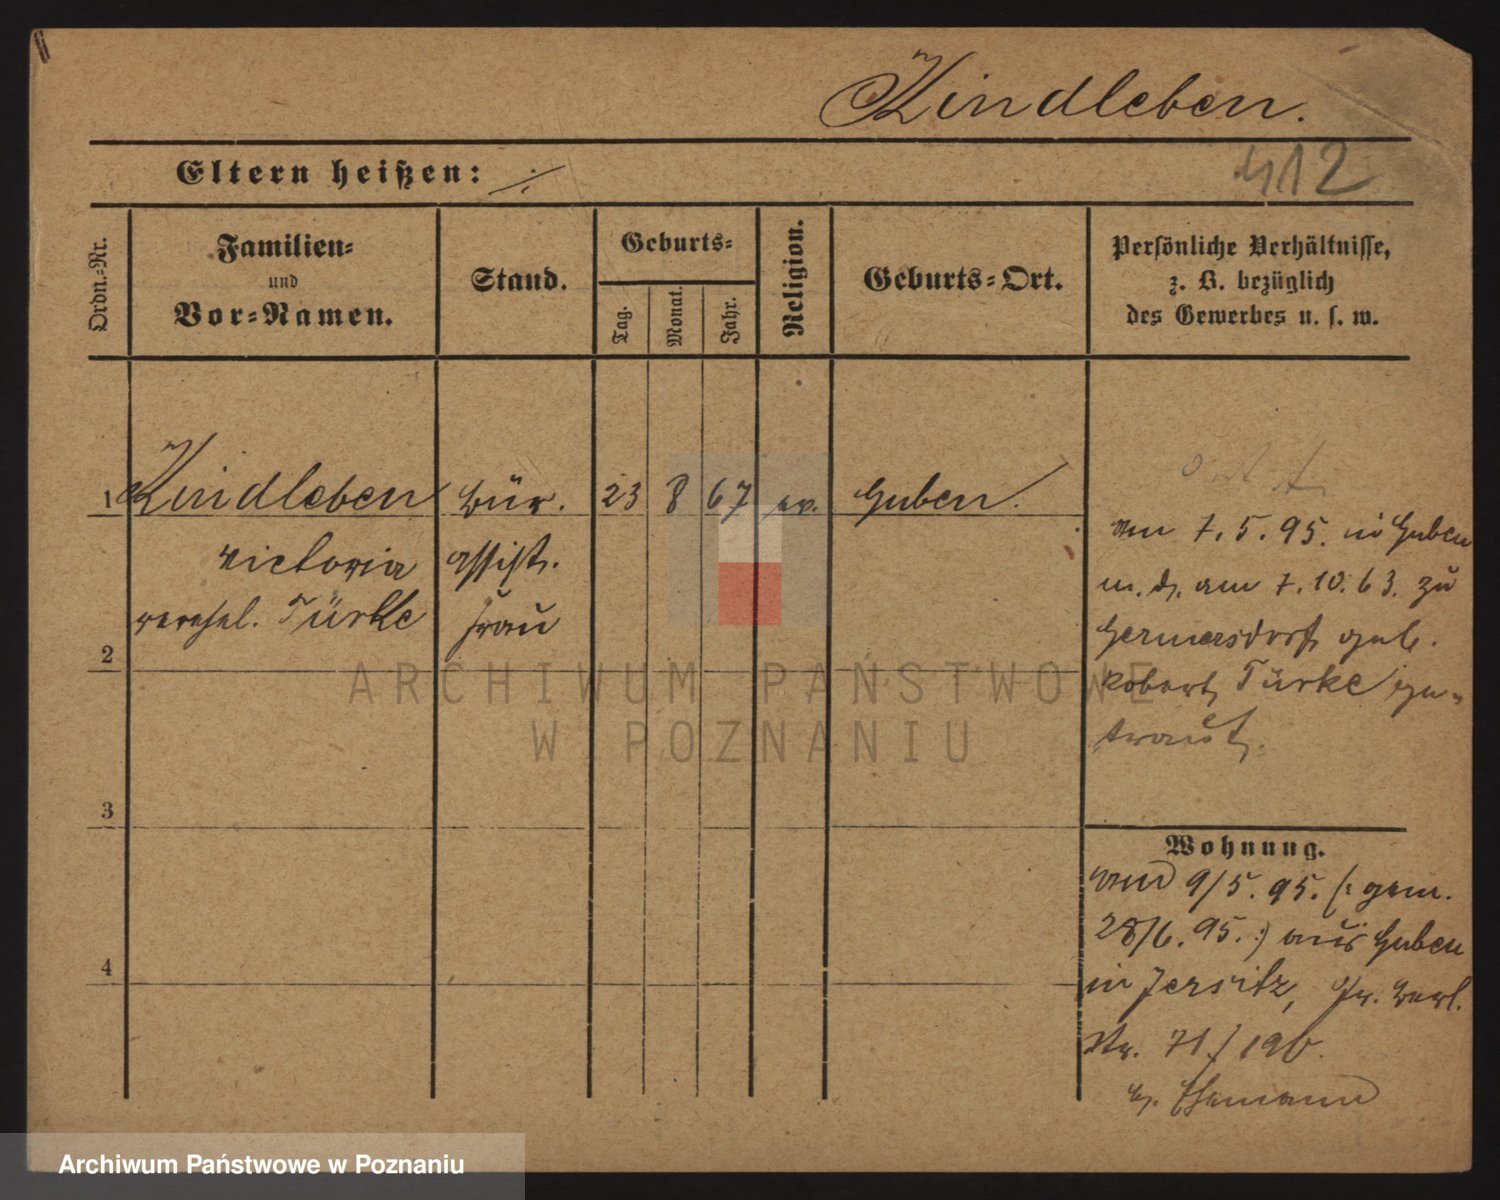 Kindleben.
Eltern heißen: ·/·
412
Ordn.-Nr.
Familien-
und
Vor-Namen.
Stand.
Geburts-
Tag.
Monat.
Jahr.
Religion.
Geburts-Ort.
Persönliche Verhältnisse,
z. B. bezüglich
des Gewerbes u. s. w.
1 Kindleben Bür. 23 8 67 ev. Guben.
Victoria assist.
verehel. Türke frau
2
3
4
am 7. 5. 95. in Guben
m. d. am 7. 10. 63. zu
Germersdorf geb.
Robert Türke ge-
traut.
Wohnung.
9/5. 95. (: gem.
28/6. 95. :) aus Guben
in Jersitz, Gr. Berl.
Str. 71 / 190.
b. Ehemann
ARCHIWUM PAŃSTWOWE
W POZNANIU
Archiwum Państwowe w Poznaniu